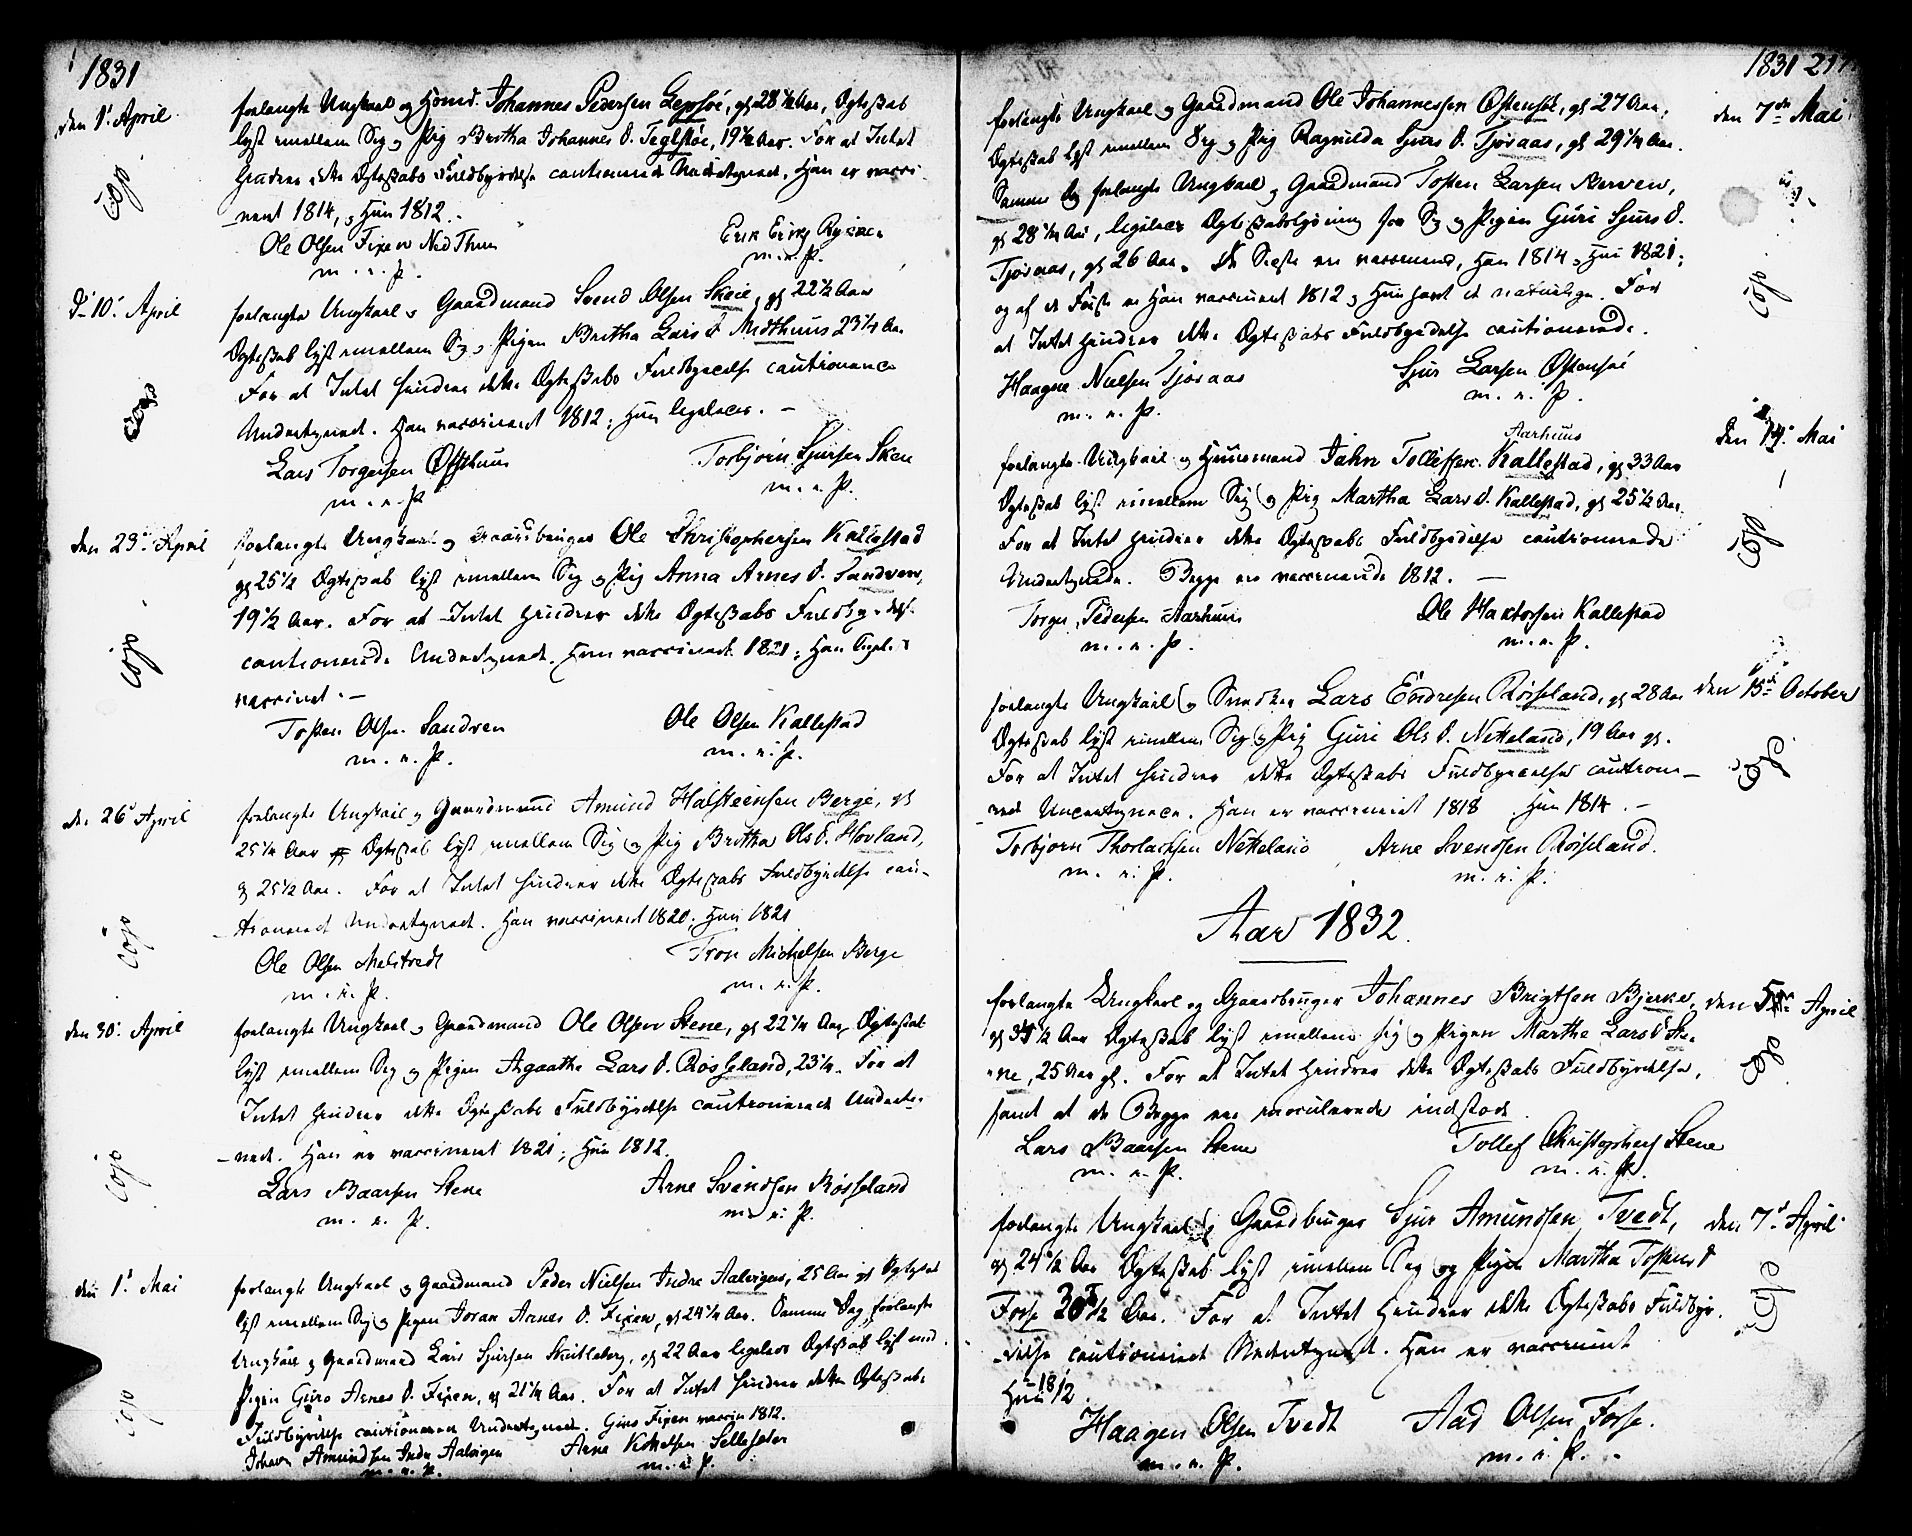 1831
den 1' April. forlangte Ungkarl og Huusmd. Johannes Pedersen Lepsøe, gl 28½ Aar, Ægteskab
lyst imellem Sig og Pig Britha Johannes D. Teglsøe, 19½ Aar. For at Intet
hindrer dette Ægteskabs Fuldbyrdelse cautionered Undertegned. Han er vacci-
neret 1814, og Hun 1812.-
Ole Olsen Fixen Ned Thun
m. r. P. m. r. P.
D. 10' April forlangte Ungkarl og Gaardmand Svend Olsen Skeie, gl 22½ Aar
Ægteskab lyst imellem Sig og Pigen Britha Lars D. Midthuus 23¼ Aar
For at Intet hindrer dette Ægteskabs Fuldbyrdelse cautionerede
Undertegned. Han vaccineret 1812; Hun ligeledes. -
Lars Torgersen Østhuus Torbjørn Sjursen Skeie
m. r. P. m. r. P.
den 23' April forlangte Ungkarl og Gaardbruger Ole Christophersen Kallestad
gl 25½ Ægteskab lyst imellem Sig og Pig Anna Arnes D. Sandven,
19½ Aar. For at Intet hindrer dette Ægteskabs Fuldbyrdelse
cautionerede Undertegned. Hun vaccineret 1821; Han ligel.
vaccinet. -
Tosten Olsen Sandven Ole Olsen Kallestad
m. r. P. m. r. P.
den 26' April forlangte Ungkarl og Gaardmand Amund Halsteensen Berge, gl
25¼ Aar Ægteskab lyst imellem Sig og Pig Britha Ols D. Hovland,
gl 25½ Aar. For at Intet hindrer dette Ægteskabs Fuldbyrdelse cau-
tioneret Undertegned. Han vaccineret 1820, Hun 1821
Ole Olsen Melstvedt Tron Michelsen Berge
m. r. P. m. r. P.
den 30' April forlangte Ungkarl og Gaardmand Ole Olsen Stene, gl 22¼ Aar, Ægteskab
lyst imellem Sig og Pigen Agaathe Lars D. Røsseland, 23¼. For at
Intet hindrer dette Ægteskabs Fuldbyrdelse cautionerede Underte-
-ned. Han er vaccineret 1821; Hun 1812.
Lars Baarsen Stene Arne Svendsen Røsseland
m. r. P. m. r. P.
den 1' Mai forlangte Ungkarl og Gaardmand Peder Nielsen Indre Aalvigen, 25 Aar gl Ægteskab
lyst imellem Sig og Pigen Joran Arnes D. Fixen, gl 24¼ Aar. Samme Dag forlangte
Ungkarl og Gaardmand Lars Sjursen Skutleberg, gl 22 Aar ligeledes Ægteskab lyst med
Pigen Guro Arnes D. Fixen, gl 21¼ Aar. For at Intet hindrer dette Ægteskabs
Fuldbyrdelse cautionerer Undertegned. Guro Fixen vaccin 1812.
Johan Amundsen Indre Aalvigen Arne
m. r. P. m. r. P.
1831
forlangte Ungkarl og Gaardmand Ole Johannessen Østensøe, gl 27 Aar, den 7de Mai
Ægteskab lyst imellem Sig og Pig Ragnilda Sjurs D. Tjoraas, gl 29¼ Aar.
Samme Dag forlangte Ungkarl og Gaardmand Tosten Larsen Nerven,
gl 28¼ Aar, ligeledes Ægteskabslysning for Sig og Pigen Guri Sjurs D.
Tjoraas, gl 26 Aar. De Sidste ere vaccinered, Han 1814 og Hun 1821;
og af de Første er Han vaccineret 1812 og Hun havt de naturlige. For
at Intet hindrer dette Ægteskabs Fuldbyrdelse cautionerede.
Haagne Nielsen Tjoraas Sjur Larsen Østensøe
m. r. P. m. r. P.
Aarhuus
forlangte Ungkarl og Huusmand Jahn Tollefsen Kallestad, gl 33 Aar den 14' Mai
Ægteskab lyst imellem Sig og Pig Martha Lars D. Kallestad, gl 25½ Aar.
For at Intet hindrer dette Ægteskabs Fuldbyrdelse cautionerede
Undertegnede. Begge ere vaccinerede 1812. -
Torger Pedersen Aarhuus Ole Haktorsen Kallestad
m. r. P. m. r. P.
forlangte Ungkarl og Snedker Lars Endresen Røiseland, gl 28 Aar den 15de October
Ægteskab lyst imellem Sig og Pig Guri Ols D. Netteland, 19 Aar gl.
For at Intet hindrer dette Ægteskabs Fuldbyrdelse caution-
-ered Undertegnede. Han er vaccineret 1818 Hun 1814. -
Torbjørn Thorlachsen Netteland Arne Svendsen Røiseland.
m. r. P. m. r. P.
Aar 1832.
forlangte Ungkarl og Gaardbruger Johannes Brigtsen Bjerke, den 5te April
gl 34½ Aar Ægteskab lyst imellem sig og Pigen Marthe Lars D Ste-
-ne, 25 Aar gl. For at Intet hindrer dette Ægteskabs Fuldbyrdelse,
samt at de Begge ere inoculerede indstode.
Lars Baarsen Stene Tollef Christophers Stene
m. r. P. m. r. P.
forlangte Ungkarl og Gaardbruger Sjur Amundsen Tvedt, den 7' April
gl 24½ Aar Ægteskab lyst imellem Sig og Pigen Martha Tostens D
Fosse 30½ Aar. For at Intet hindrer dette Ægteskabs Fuldbyr-
-delse cautioneret Undertegnet. Han er vaccineret
Hun 1812
Haagen Olsen Tvedt Aad Olsen Fosse.
m. r. P. m. r. P.